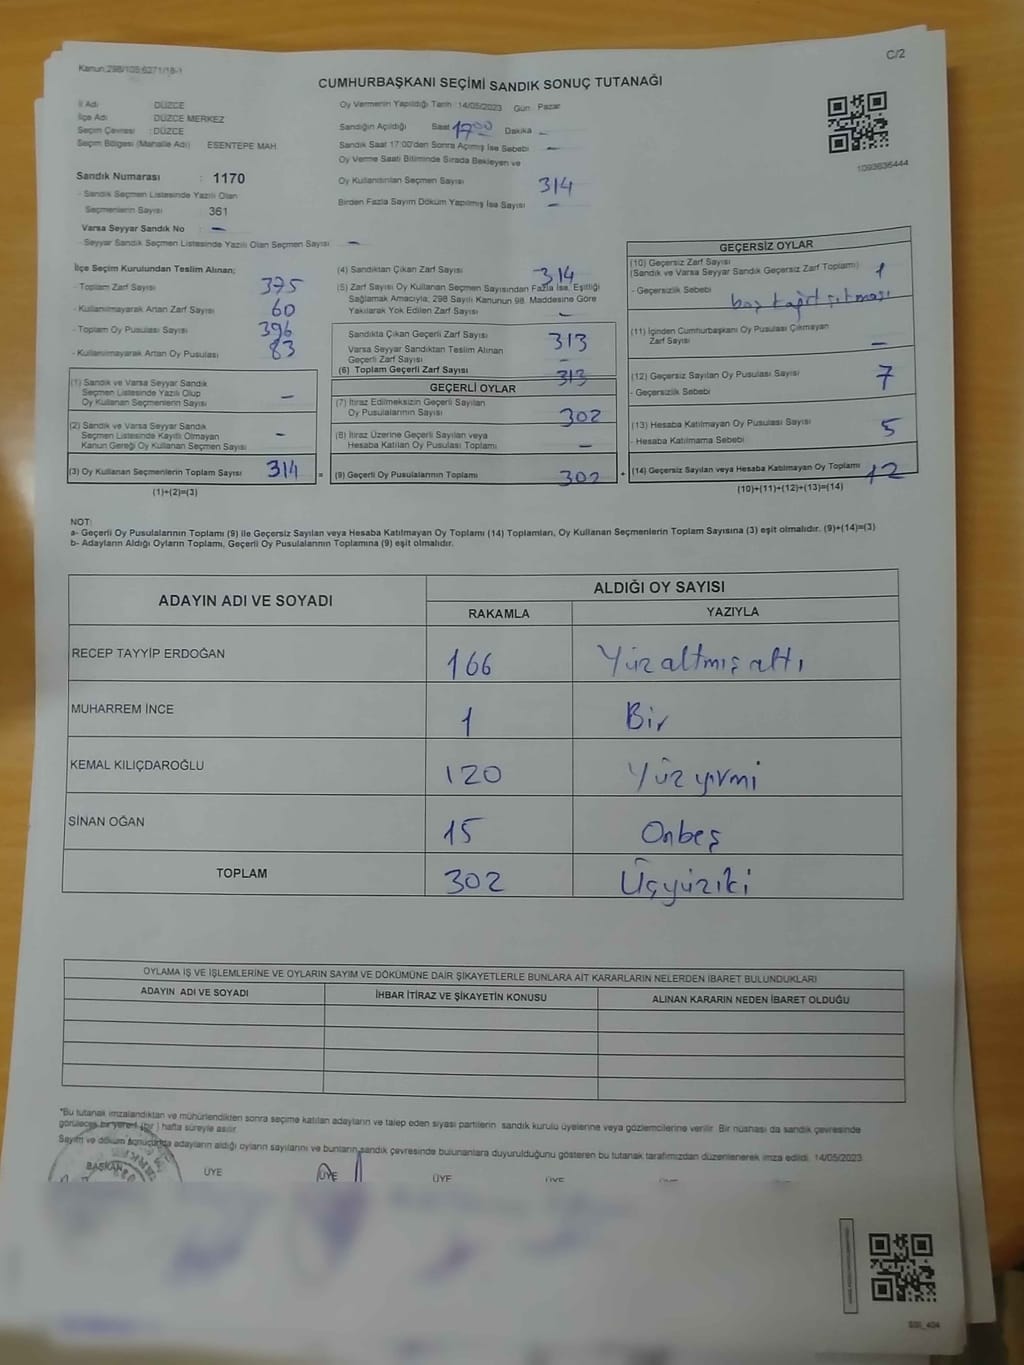 C/2
Kanun:298/105;6271/18-1
CUMHURBAŞKANI SEÇİMİ SANDIK SONUÇ TUTANAĞI
İl Adı DÜZCE
İlçe Adı DÜZCE MERKEZ
Seçim Çevresi : DÜZCE
Seçim Bölgesi (Mahalle Adı) ESENTEPE MAH.
Sandık Numarası : 1170
- Sandık Seçmen Listesinde Yazılı Olan
Seçmenlerin Sayısı : 361
Varsa Seyyar Sandık No : -
- Seyyar Sandık Seçmen Listesinde Yazılı Olan Seçmen Sayısı : -
Oy Vermenin Yapıldığı Tarih : 14/05/2023 Gün : Pazar
Sandığın Açıldığı Saat 17:00 Dakika -
Sandık Saat 17:00'den Sonra Açılmış İse Sebebi -
Oy Verme Saati Bitiminde Sırada Bekleyen ve
Oy Kullandırılan Seçmen Sayısı 314
Birden Fazla Sayım Döküm Yapılmış İse Sayısı -
1093636444
İlçe Seçim Kurulundan Teslim Alınan;
- Toplam Zarf Sayısı 375
- Kullanılmayarak Artan Zarf Sayısı 60
- Toplam Oy Pusulası Sayısı 396
- Kullanılmayarak Artan Oy Pusulası 83
(1) Sandık ve Varsa Seyyar Sandık
Seçmen Listesinde Yazılı Olup
Oy Kullanan Seçmenlerin Sayısı -
(2) Sandık ve Varsa Seyyar Sandık
Seçmen Listesinde Kayıtlı Olmayan
Kanun Gereği Oy Kullanan Seçmen Sayısı -
(3) Oy Kullanan Seçmenlerin Toplam Sayısı 314 =
(1)+(2)=(3)
(4) Sandıktan Çıkan Zarf Sayısı 314
(5) Zarf Sayısı Oy Kullanan Seçmen Sayısından Fazla İse, Eşitliği
Sağlamak Amacıyla; 298 Sayılı Kanunun 98. Maddesine Göre
Yakılarak Yok Edilen Zarf Sayısı -
Sandıkta Çıkan Geçerli Zarf Sayısı 313
Varsa Seyyar Sandıktan Teslim Alınan
Geçerli Zarf Sayısı -
(6) Toplam Geçerli Zarf Sayısı 313
GEÇERLİ OYLAR
(7) İtiraz Edilmeksizin Geçerli Sayılan
Oy Pusulalarının Sayısı 302
(8) İtiraz Üzerine Geçerli Sayılan veya
Hesaba Katılan Oy Pusulası Toplamı -
(9) Geçerli Oy Pusulalarının Toplamı 302 +
GEÇERSİZ OYLAR
(10) Geçersiz Zarf Sayısı
(Sandık ve Varsa Seyyar Sandık Geçersiz Zarf Toplamı) 1
- Geçersizlik Sebebi boş kağıt çıkması
(11) İçinden Cumhurbaşkanı Oy Pusulası Çıkmayan
Zarf Sayısı -
(12) Geçersiz Sayılan Oy Pusulası Sayısı 7
- Geçersizlik Sebebi
(13) Hesaba Katılmayan Oy Pusulası Sayısı 5
- Hesaba Katılmama Sebebi
(14) Geçersiz Sayılan veya Hesaba Katılmayan Oy Toplamı 12
(10)+(11)+(12)+(13)=(14)
NOT:
a- Geçerli Oy Pusulalarının Toplamı (9) ile Geçersiz Sayılan veya Hesaba Katılmayan Oy Toplamı (14) Toplamları, Oy Kullanan Seçmenlerin Toplam Sayısına (3) eşit olmalıdır. (9)+(14)=(3)
b- Adayların Aldığı Oyların Toplamı, Geçerli Oy Pusulalarının Toplamına (9) eşit olmalıdır.
ADAYIN ADI VE SOYADI ALDIĞI OY SAYISI
RAKAMLA YAZIYLA
RECEP TAYYİP ERDOĞAN 166 Yüzaltmışaltı
MUHARREM İNCE 1 Bir
KEMAL KILIÇDAROĞLU 120 Yüzyirmi
SİNAN OĞAN 15 Onbeş
TOPLAM 302 Üçyüziki
OYLAMA İŞ VE İŞLEMLERİNE VE OYLARIN SAYIM VE DÖKÜMÜNE DAİR ŞİKAYETLERLE BUNLARA AİT KARARLARIN NELERDEN İBARET BULUNDUKLARI
ADAYIN ADI VE SOYADI İHBAR İTİRAZ VE ŞİKAYETİN KONUSU ALINAN KARARIN NEDEN İBARET OLDUĞU
*Bu tutanak imzalandıktan ve mühürlendikten sonra seçime katılan adayların ve talep eden siyasi partilerin sandık kurulu üyelerine veya gözlemcilerine verilir. Bir nüshası da sandık çevresinde
görülecek bir yerde 1 (bir) hafta süreyle asılır.
Sayım ve döküm sonucunda adayların aldığı oyların sayılarını ve bunların sandık çevresinde bulunanlara duyurulduğunu gösteren bu tutanak tarafımızdan düzenlenerek imza edildi. 14/05/2023
BAŞKAN ÜYE ÜYE ÜYE ÜYE
SSI_404